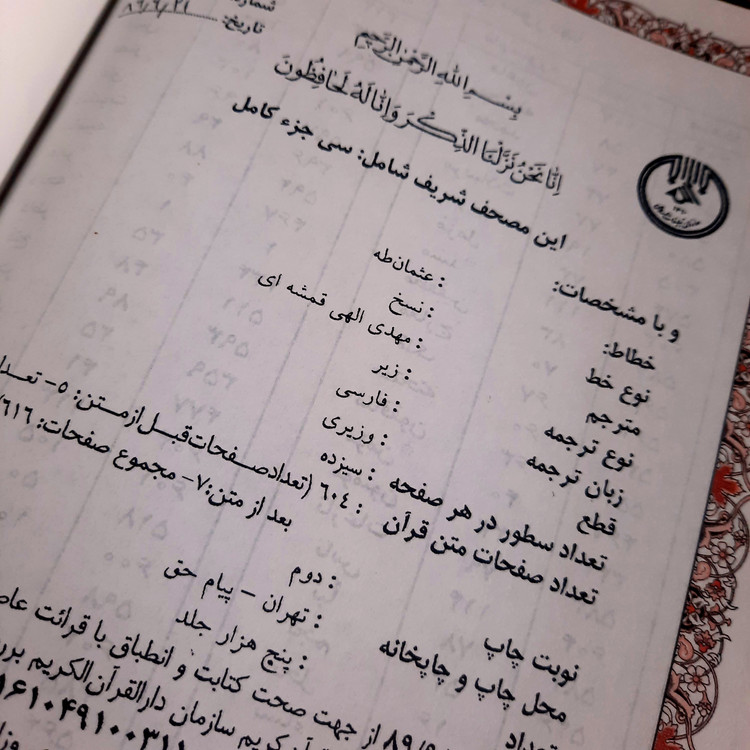 شماره
تاریخ: ۸۹/۶/۲۱
بِسْمِ اللهِ الرَّحْمنِ الرَّحِیمِ
اِنّا نَحْنُ نَزَّلْنَا الذِّکْرَ وَ اِنّا لَهُ لَحافِظُونَ
این مصحف شریف شامل: سی جزء کامل
و با مشخصات:
خطاط: : عثمان‌طه
نوع خط : نسخ
مترجم : مهدی الهی قمشه ای
نوع ترجمه : زیر
زبان ترجمه : فارسی
قطع : وزیری
تعداد سطور در هر صفحه : سیزده
تعداد صفحات متن قرآن : ۶۰۴ (تعداد صفحات قبل از متن: ۵- تعداد
بعد از متن: ۷- مجموع صفحات: ۶۱۶
نوبت چاپ : دوم
محل چاپ و چاپخانه : تهران - پیام حق
تعداد : پنج هزار جلد
از جهت صحت کتابت و انطباق با قرائت
کریم سازمان دارالقرآن‌الکریم